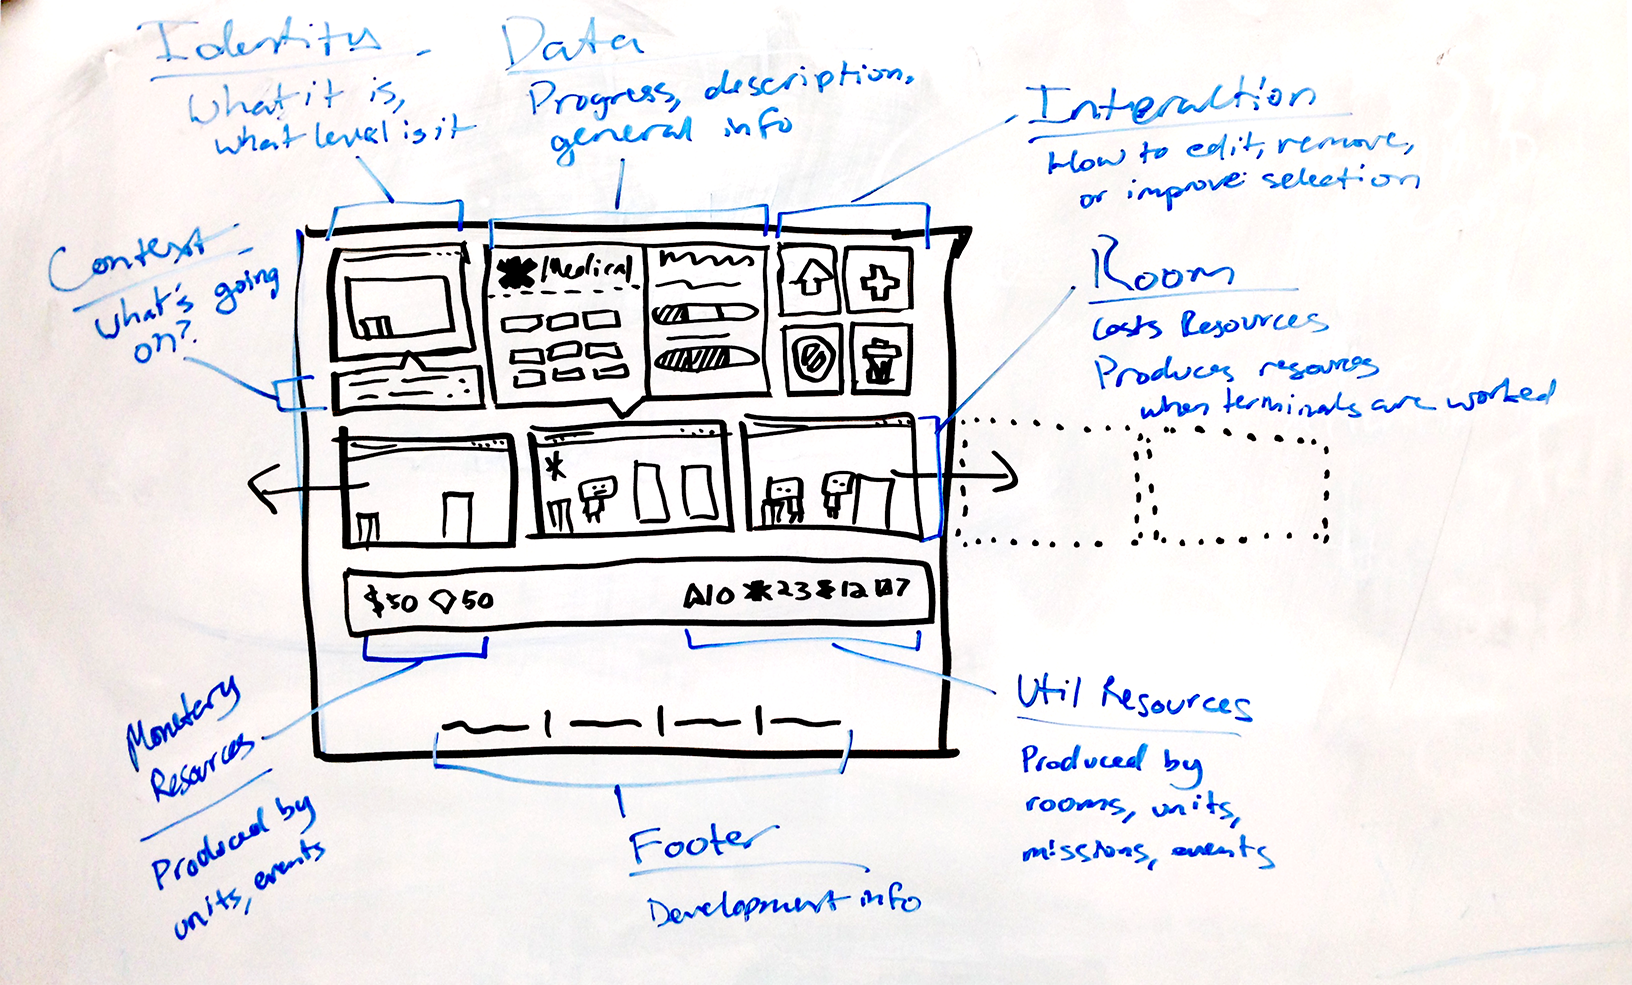 Identity
What it is,
what level is it
Data
Progress, description,
general info
Interaction
How to edit, remove,
or improve selection
Context
What's going
on?
Room
Costs Resources
Produces resources
when terminals are worked
/Medical
$50 50
10 23 12 7
Monetary
Resources
Produced by
units, events
Util Resources
Produced by
rooms, units,
missions, events
Footer
Development info